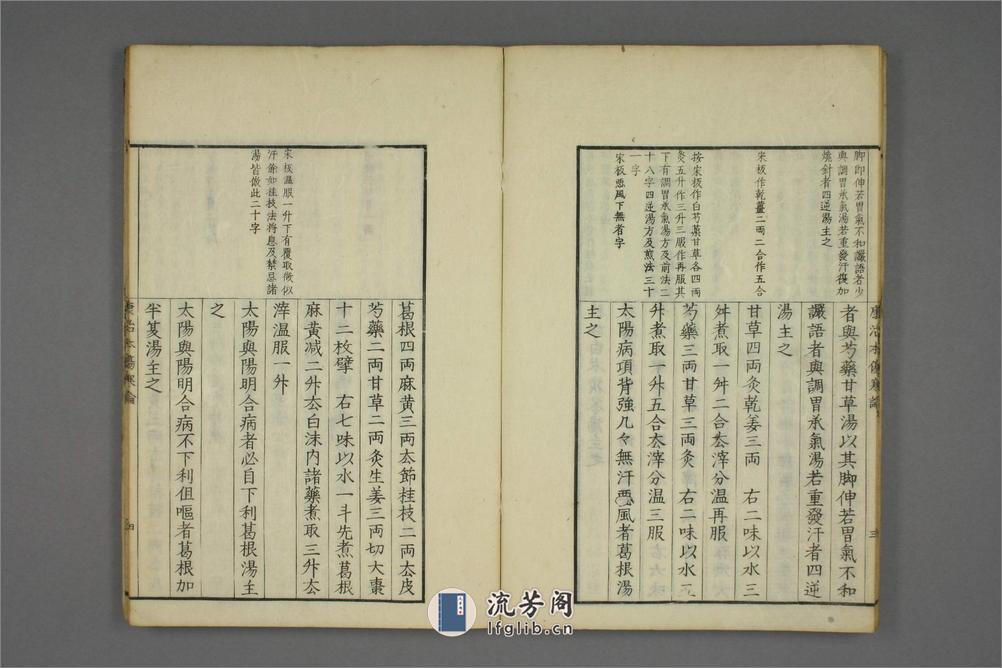 康治本傷寒論
三
脚即伸若胃氣不和讝語者少
與調胃承氣湯若重發汗復加
燒針者四逆湯主之
宋板作乾薑二兩二合作五合
按宋板作白芍藥甘草各四兩
炙五升作三升三服作再服其
下有調胃承氣湯方及前法二
十八字四逆湯方及煎法三十
一字
宋板惡風下無者字
者與芍藥甘草湯以其脚伸若胃氣不和
讝語者與調胃承氣湯若重發汗者四逆
湯主之
甘草四兩炙乾姜三兩 右二味以水三
舛煮取一舛二合厺滓分温再服
芍藥三兩甘草三兩炙 右二味以水五
舛煮取一舛五合厺滓分温三服
太陽病項背強几々無汗惡風者葛根湯
主之
宋板温服一升下有覆取微似
汗餘如桂枝法將息及禁忌諸
湯皆倣此二十字
葛根四兩麻黄三兩厺節桂枝二兩厺皮
芍藥二兩甘草二兩炙生姜三兩切大棗
十二枚擘 右七味以水一斗先煮葛根
麻黄減二舛厺白沫内諸藥煮取三舛厺
滓温服一舛
太陽與陽明合病者必自下利葛根湯主
之
太陽與陽明合病不下利但嘔者葛根加
半夏湯主之
康治本傷寒論
四
流芳阁
lfglib.cn